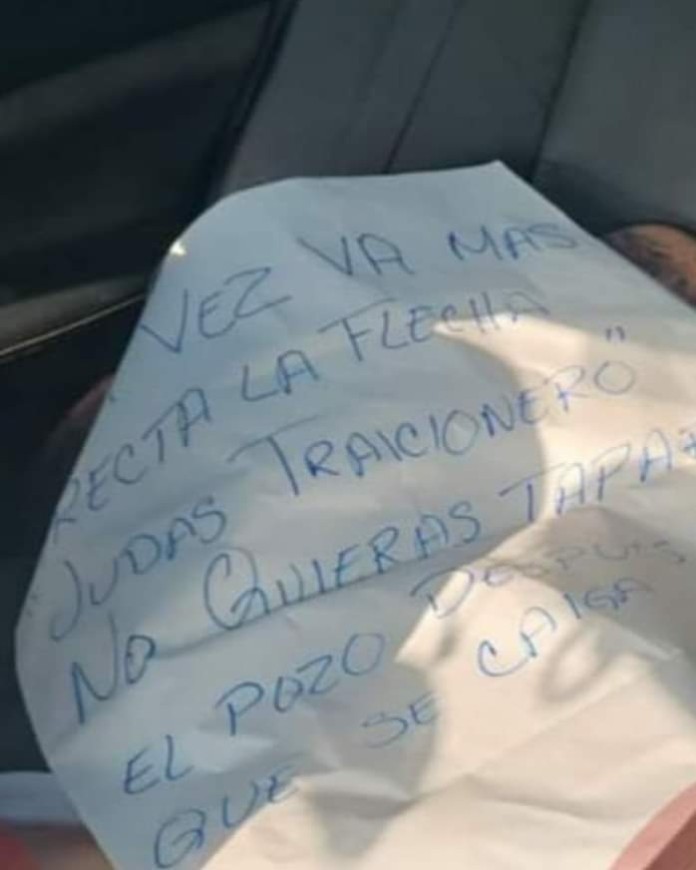 VEZ VA MAS
RECTA LA FLECHA
"JUDAS TRAICIONERO"
NO QUIERAS TAPAR
EL POZO DESPUES
QUE SE CAIGA